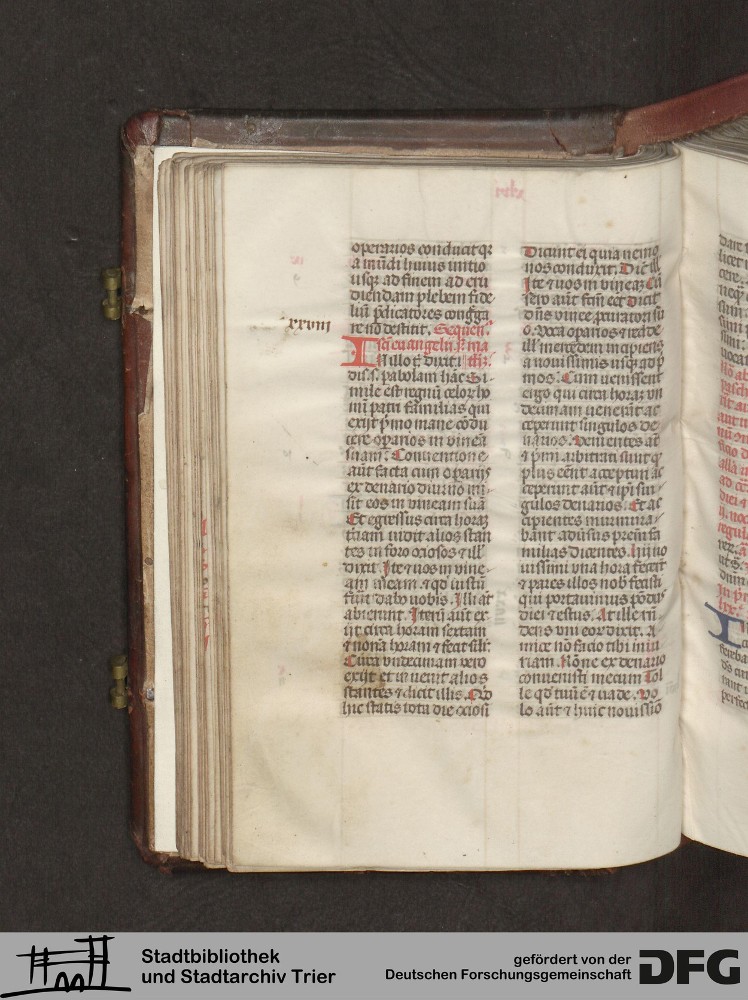 operarios conducit qr
a mūdi huius initio
usq; ad finem ad eru
diendam plebem fide
liū p̄dicatores congga
re nō destitit. Sequen.
xxviii
scī euangelii. s. ma
In illo t̄. dixit i th'.
dis. s. pabolam hāc Si
mile est regnū celor ho
mī patri familias qui
exijt p̄mo mane cōdu
cere opārios in vineā
suam. Conuentione
aūt facta cum opārijs
ex denario diurno mi
sit eos in vineam suā
Et egressus circa horaȝ
t̄ciam uidit alios stan
tes in foro ociosos ⁊ ill'
dixit. Ite ⁊ uos in vine
am meam. ⁊ qd iustū
fūit dabo uobis. Illi aūt
abierunt. Iterū aūt ex
ijt circa horam sextam
⁊ nonā horam ⁊ fecit silr.
Circa vndecimam vero
exijt et inuenit alios
stantes ⁊ dicit illis. Qd
hic statis tota die ociosi
Dicunt ei quia nemo
nos conduxit. Dic̄ ill'
Ite ⁊ uos in vineaȝ Cū
sero aūt factū eēt dicit
dn̄s vinee procuratori su
o. Voca opārios ⁊ redde
ill' mercedem incipiens
a nouissimis usq; ad p̄
mos. Cum uenissent
ergo qui circa horaȝ vn
decimam uenerāt ac
ceperunt singulos de
narios. Venientes aūt
⁊ p̄mi arbitrati sunt q̄
plus eēnt accepturi ac
ceperunt aūt ⁊ ipi sin
gulos denarios. Et ac
cipientes murmura
bānt adūsus prem̄ fa
milias dicentes. hij no
uissimi vna hora fecert
⁊ pares illos nob̄ fecisti
qui portauimus pōdus
diei ⁊ estus. At ille rn̄
dens vni eor dixit. A
mice nō facio tibi iniu
riam. Nōne ex denario
conuenisti mecum Tol
le qd tuū ē ⁊ uade. Vo
lo aūt ⁊ huic nouissīo
Stadtbibliothek
und Stadtarchiv Trier
gefördert von der
Deutschen Forschungsgemeinschaft
DFG